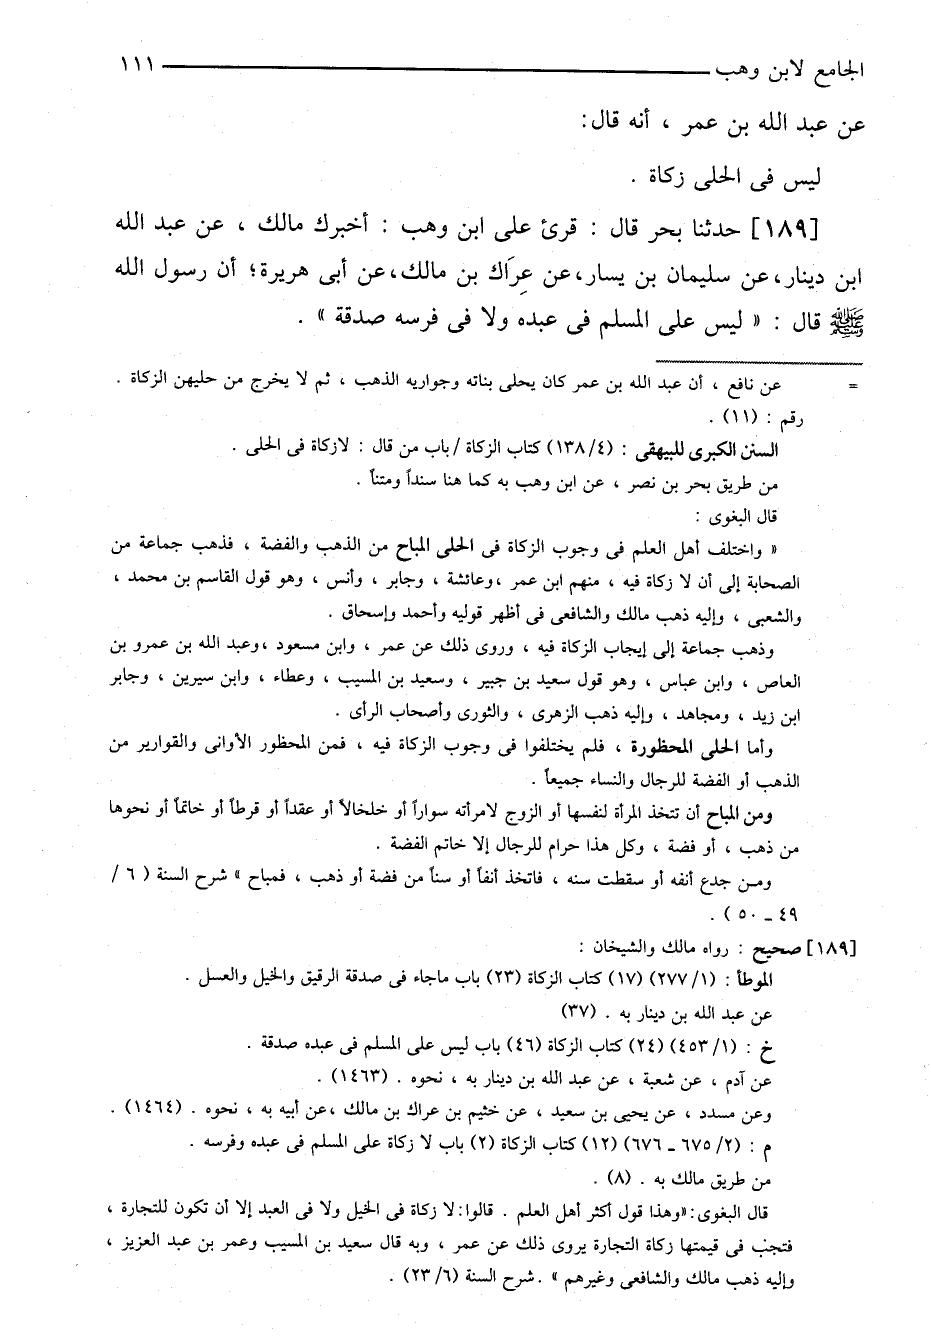 الجامع لابن وهب ـــــــــــــــــــــــــــــ ١١١
عن عبد الله بن عمر ، أنه قال :
ليس فى الحلى زكاة .
[١٨٩] حدثنا بحر قال : قرئ على ابن وهب : أخبرك مالك ، عن عبد الله
ابن دينار، عن سليمان بن يسار، عن عِرَاك بن مالك، عن أبى هريرة؛ أن رسول الله
ﷺ قال : « ليس على المسلم فى عبده ولا فى فرسه صدقة » .
= عن نافع ، أن عبد الله بن عمر كان يحلى بناته وجواريه الذهب ، ثم لا يخرج من حليهن الزكاة .
رقم : (١١) .
السنن الكبرى للبيهقى : (٤/ ١٣٨) كتاب الزكاة / باب من قال : لازكاة فى الحلى .
من طريق بحر بن نصر ، عن ابن وهب به كما هنا سنداً ومتناً .
قال البغوى :
« واختلف أهل العلم فى وجوب الزكاة فى الحلى المباح من الذهب والفضة ، فذهب جماعة من
الصحابة إلى أن لا زكاة فيه ، منهم ابن عمر ،وعائشة ، وجابر ، وأنس ، وهو قول القاسم بن محمد ،
والشعبى ، وإليه ذهب مالك والشافعى فى أظهر قوليه وأحمد وإسحاق .
وذهب جماعة إلى إيجاب الزكاة فيه ، وروى ذلك عن عمر ، وابن مسعود ،وعبد الله بن عمرو بن
العاص ، وابن عباس ، وهو قول سعيد بن جبير ، وسعيد بن المسيب ، وعطاء ، وابن سيرين ، وجابر
ابن زيد ، ومجاهد ، وإليه ذهب الزهرى ، والثورى وأصحاب الرأى .
وأما الحلى المحظورة ، فلم يختلفوا فى وجوب الزكاة فيه ، فمن المحظور الأوانى والقوارير من
الذهب أو الفضة للرجال والنساء جميعاً .
ومن المباح أن تتخذ المرأة لنفسها أو الزوج لامرأته سواراً أو خلخالاً أو عقداً أو قرطاً أو خاتماً أو نحوها
من ذهب ، أو فضة ، وكل هذا حرام للرجال إلا خاتم الفضة .
ومـن جدع أنفه أو سقطت سنه ، فاتخذ أنفاً أو سناً من فضة أو ذهب ، فمباح » شرح السنة ( ٦ /
٤٩ ـ ٥٠ ) .
[١٨٩] صحيح : رواه مالك والشيخان :
الموطأ : (١/ ٢٧٧) (١٧) كتاب الزكاة (٢٣) باب ماجاء فى صدقة الرقيق والخيل والعسل .
عن عبد الله بن دينار به . (٣٧)
خ : (١/ ٤٥٣) (٢٤) كتاب الزكاة (٤٦) باب ليس على المسلم فى عبده صدقة .
عن آدم ، عن شعبة ، عن عبد الله بن دينار به ، نحوه . (١٤٦٣) .
وعن مسدد ، عن يحيى بن سعيد ، عن خثيم بن عراك بن مالك ،عن أبيه به ، نحوه . (١٤٦٤) .
م : (٢/ ٦٧٥ ـ ٦٧٦) (١٢) كتاب الزكاة (٢) باب لا زكاة على المسلم فى عبده وفرسه .
من طريق مالك به . (٨) .
قال البغوى: «وهذا قول أكثر أهل العلم . قالوا: لا زكاة فى الخيل ولا فى العبد إلا أن تكون للتجارة ،
فتجب فى قيمتها زكاة التجارة يروى ذلك عن عمر ، وبه قال سعيد بن المسيب وعمر بن عبد العزيز ،
وإليه ذهب مالك والشافعى وغيرهم » . شرح السنة (٦/ ٢٣) .